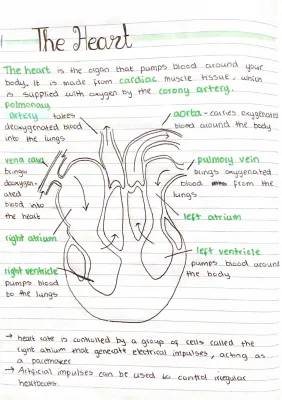 The Heart
The heart is the organ that pumps blood around your
body. It is made from cardiac muscle tissue, which
is supplied with oxygen by the corony artery.
pulmonary
artery takes
deoxygenated blood
into the lungs
aorta - carries oxygenated
blood around the body
vena cava
brings
deoxygen-
ated
blood into
the heart
pulmory vein
brings oxygenated
blood from the
lungs
left atrium
right atrium
left ventricle
pumps blood around
the body
right ventricle
pumps blood
to the lungs
→ heart rate is controlled by a group of cells called the
right atrium that generate electrical impulses, acting as
a pacemaker
→ Artificial impulses can be used to control irregular
heartbeats.